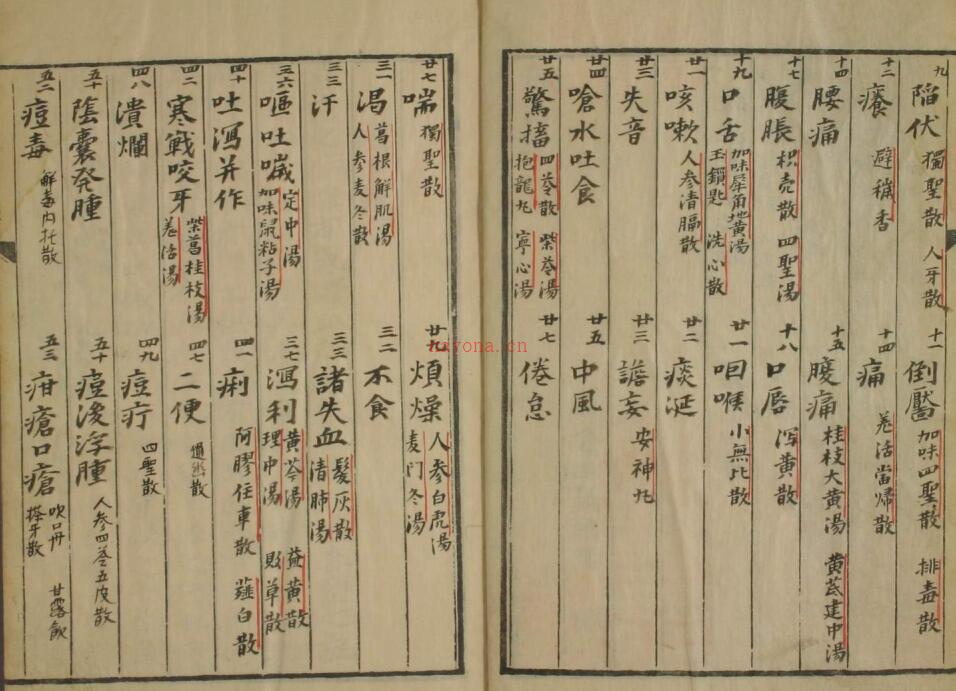 九 陷伏 獨聖散 人牙散
十一 倒黶 加味四聖散 排毒散
十二 癢 避穢香
十四 痛 羗活當帰散
十四 腰痛
十五 腹痛 桂枝大黄湯 黄芪建中湯
十七 腹脹 枳壳散 四聖湯
十八 口唇 泻黄散
十九 口舌 加味犀角地黄湯 玉鎖匙 洗心散
廿一 咽喉 小無比散
廿一 咳嗽 人参清膈散
廿二 痰涎
廿三 失音
廿三 譫妄 安神丸
廿四 嗆水吐食
廿五 中風
廿五 驚搐 四苓散 柴苓湯 抱龍丸 寧心湯
廿七 倦怠
廿七 喘 獨聖散
廿九 煩燥 人参白虎湯 麦门冬湯
三一 渇 葛根解肌湯 人参麦冬散
三二 不食
三三 汗
三三 諸失血 髮灰散 清肺湯
三六 嘔吐噦 定中湯 加味鼠粘子湯
三七 瀉利 黄芩湯 益黄散 理中湯 敗草散
四十 吐瀉并作
四一 痢 阿膠住車散 薤白散
四二 寒戰咬牙 柴葛桂枝湯 羗活湯
四七 二便
四八 潰爛
四九 痘疔 四聖散
五十 陰嚢発腫
五十 痘後浮腫 人参四苓五皮散
五二 痘毒 解毒内托散
五三 疳瘡口瘡 吹口丹 搽牙散 甘露飲
nayona.cn